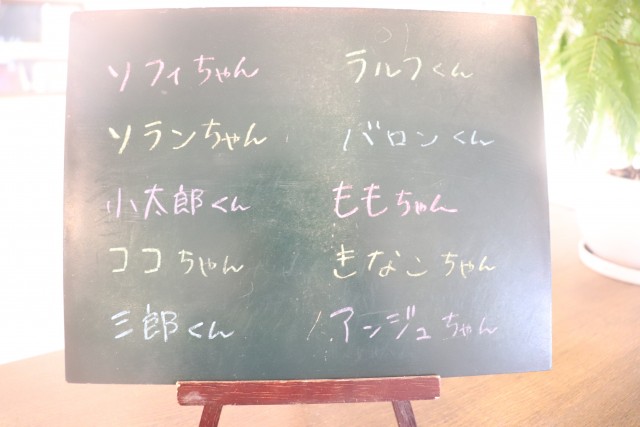 ソフィちゃん
ソランちゃん
小太郎くん
ココちゃん
三郎くん
ラルフくん
バロンくん
ももちゃん
きなこちゃん
アンジュちゃん